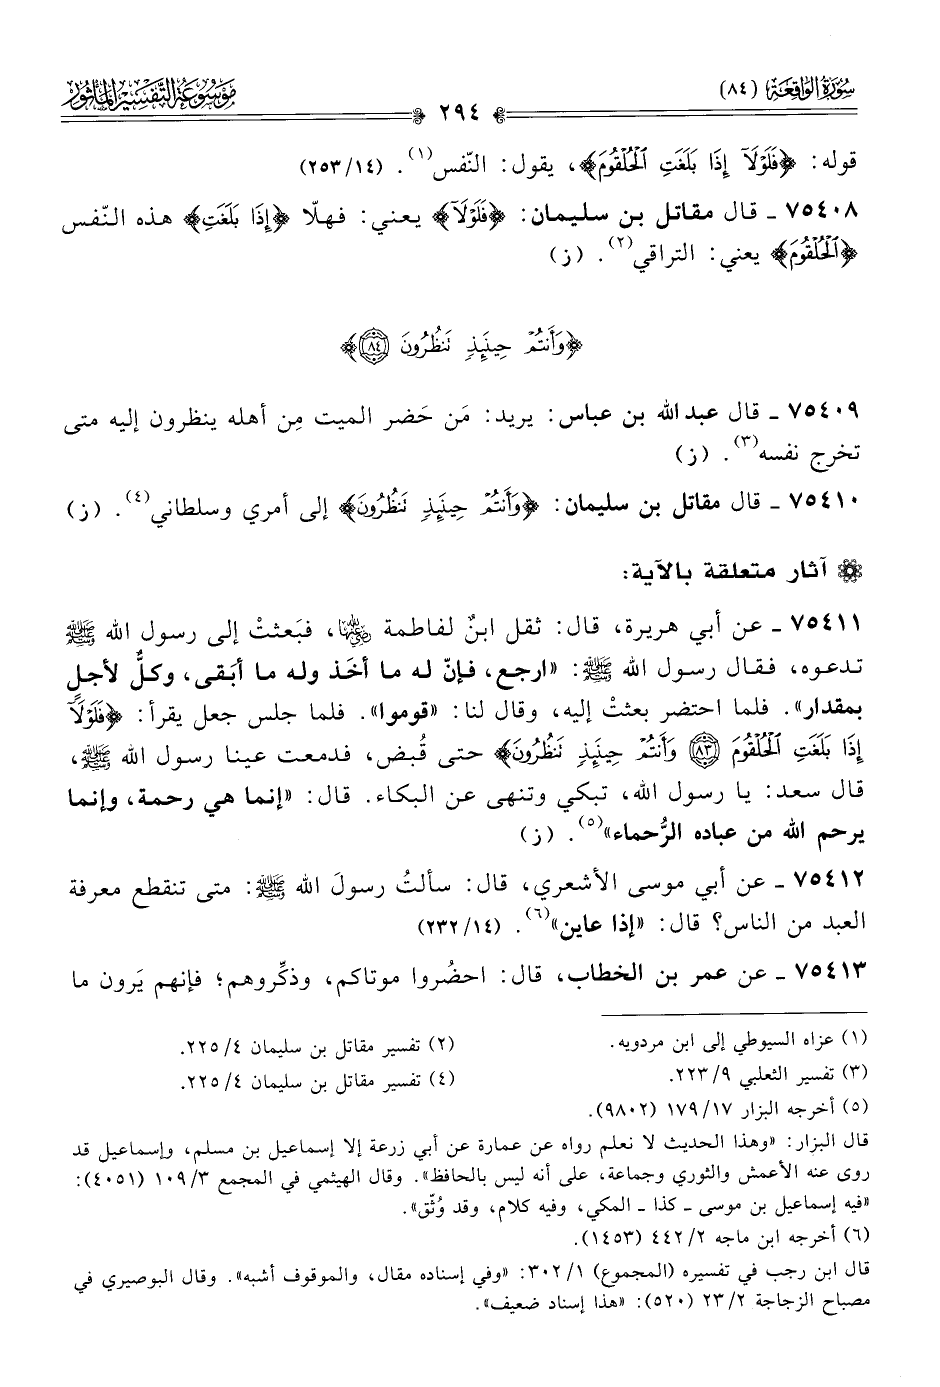 سُورَةُ الوَاقِعَة (٨٤)
٢٩٤
مَوْسُوعَة التَّفْسِير المَأْثُور
قوله: ﴿فَلَوْلَآ إِذَا بَلَغَتِ ٱلْحُلْقُومَ﴾، يقول: النّفس(١). (١٤/ ٢٥٣)
٧٥٤٠٨ ـ قال مقاتل بن سليمان: ﴿فَلَوْلَآ﴾ يعني: فهلّا ﴿إِذَا بَلَغَتِ﴾ هذه النّفس
﴿ٱلْحُلْقُومَ﴾ يعني: التراقي(٢). (ز)
﴿وَأَنتُمْ حِينَئِذٍ تَنظُرُونَ ٨٤﴾
٧٥٤٠٩ ـ قال عبد الله بن عباس: يريد: مَن حَضر الميت مِن أهله ينظرون إليه متى
تخرج نفسه(٣). (ز)
٧٥٤١٠ ـ قال مقاتل بن سليمان: ﴿وَأَنتُمْ حِينَئِذٍ تَنظُرُونَ﴾ إلى أمري وسلطاني(٤). (ز)
آثار متعلقة بالآية:
٧٥٤١١ ـ عن أبي هريرة، قال: ثقل ابنٌ لفاطمة رضي الله عنها، فبَعثتْ إلى رسول الله ﷺ
تدعوه، فقال رسول الله ﷺ: «ارجع، فإنّ له ما أخَذ وله ما أبَقى، وكلٌّ لأجلٍ
بمقدار». فلما احتضر بعثتْ إليه، وقال لنا: «قوموا». فلما جلس جعل يقرأ: ﴿فَلَوْلَآ
إِذَا بَلَغَتِ ٱلْحُلْقُومَ ٨٣ وَأَنتُمْ حِينَئِذٍ تَنظُرُونَ﴾ حتى قُبض، فدمعت عينا رسول الله ﷺ،
قال سعد: يا رسول الله، تبكي وتنهى عن البكاء. قال: «إنما هي رحمة، وإنما
يرحم الله من عباده الرُّحماء»(٥). (ز)
٧٥٤١٢ ـ عن أبي موسى الأشعري، قال: سألتُ رسولَ الله ﷺ: متى تنقطع معرفة
العبد من الناس؟ قال: «إذا عاين»(٦). (١٤/ ٢٣٢)
٧٥٤١٣ ـ عن عمر بن الخطاب، قال: احضُروا موتاكم، وذكِّروهم؛ فإنهم يَرون ما
(١) عزاه السيوطي إلى ابن مردويه.
(٢) تفسير مقاتل بن سليمان ٤/ ٢٢٥.
(٣) تفسير الثعلبي ٩/ ٢٢٣.
(٤) تفسير مقاتل بن سليمان ٤/ ٢٢٥.
(٥) أخرجه البزار ١٧/ ١٧٩ (٩٨٠٢).
قال البزار: «وهذا الحديث لا نعلم رواه عن عمارة عن أبي زرعة إلا إسماعيل بن مسلم، وإسماعيل قد
روى عنه الأعمش والثوري وجماعة، على أنه ليس بالحافظ». وقال الهيثمي في المجمع ٣/ ١٠٩ (٤٠٥١):
«فيه إسماعيل بن موسى ـ كذا ـ المكي، وفيه كلام، وقد وُثّق».
(٦) أخرجه ابن ماجه ٢/ ٤٤٢ (١٤٥٣).
قال ابن رجب في تفسيره (المجموع) ١/ ٣٠٢: «وفي إسناده مقال، والموقوف أشبه». وقال البوصيري في
مصباح الزجاجة ٢/ ٢٣ (٥٢٠): «هذا إسناد ضعيف».